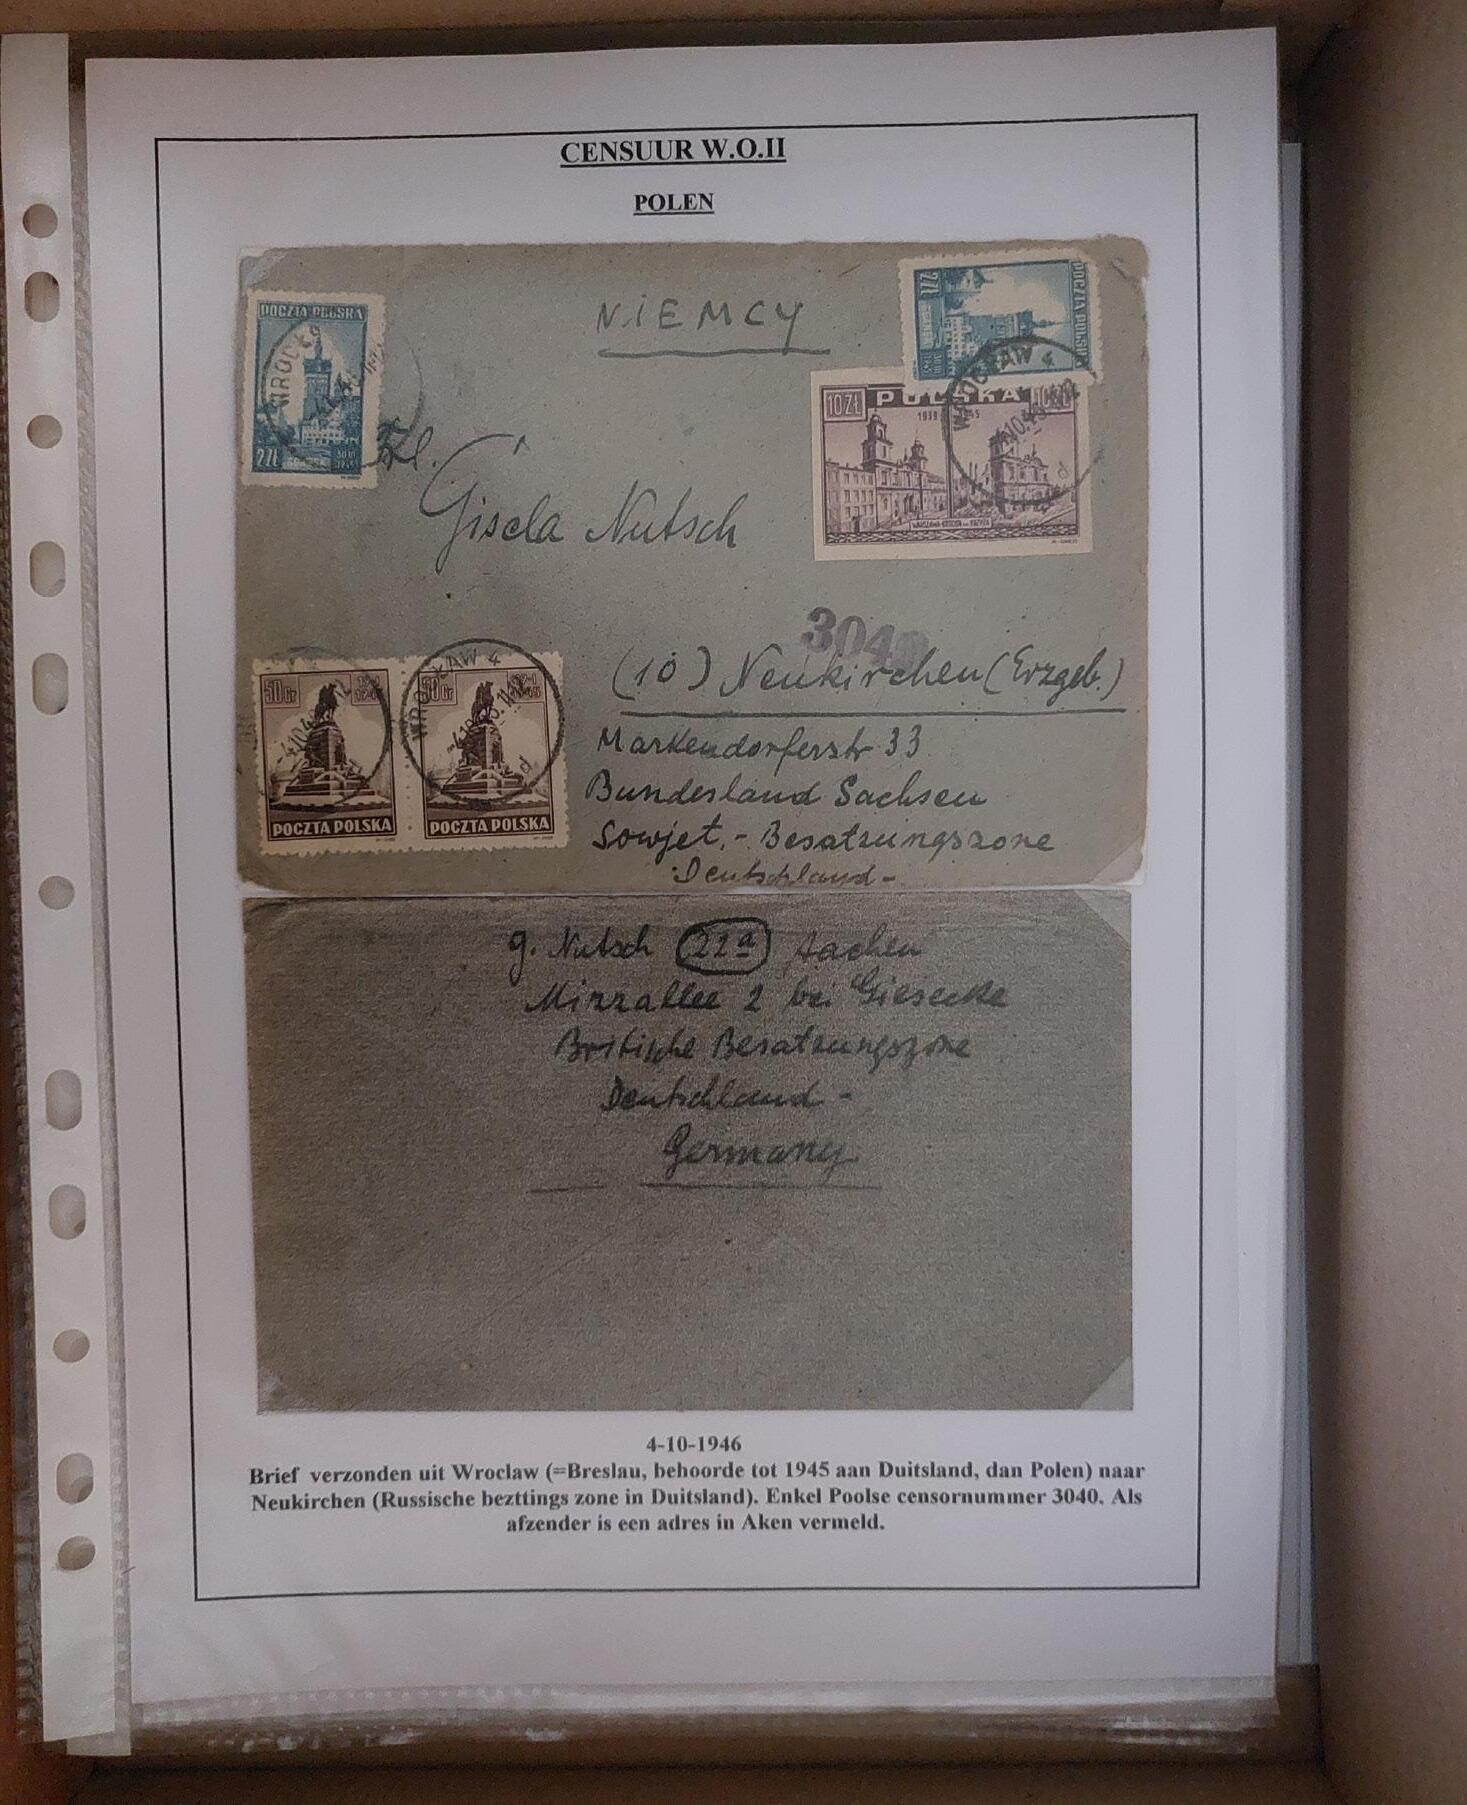 CENSUUR W.O.II
POLEN
NIEMCY
POCZTA POLSKA
2ZŁ
WROCŁAW
2ZŁ
POCZTA POLSKA
POLSKA
10ZŁ
10ZŁ
1939 1945
WROCŁAW 4
d
Frl.
Gisela Nutsch
3040
(10) Neukirchen (Erzgeb.)
Markendorferstr 33
Bundesland Sachsen
Sowjet.-Besatzungszone
Deutschland-
50Gr
50Gr
WROCŁAW 4
d
POCZTA POLSKA
POCZTA POLSKA
G. Nutsch 22a Aachen
Mizzallee 2 bei Giesecke
Britische Besatzungszone
Deutschland -
Germany
4-10-1946
Brief verzonden uit Wroclaw (=Breslau, behoorde tot 1945 aan Duitsland, dan Polen) naar
Neukirchen (Russische bezttings zone in Duitsland). Enkel Poolse censornummer 3040. Als
afzender is een adres in Aken vermeld.